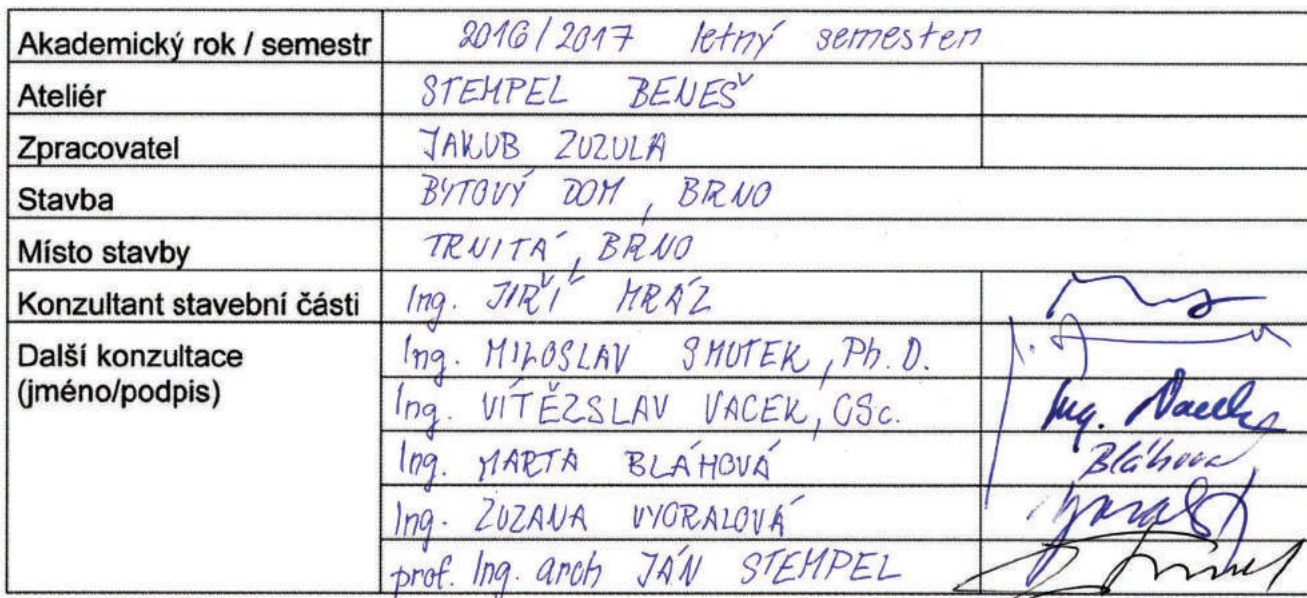 Akademický rok / semestr 2016/2017 letný semester
Ateliér STEMPEL BENEŠ
Zpracovatel JAKUB ZUZULA
Stavba BYTOVÝ DOM, BRNO
Místo stavby TRNITÁ, BRNO
Konzultant stavební části Ing. JIŘÍ MRÁZ
Další konzultace Ing. MILOSLAV SMUTEK, Ph.D.
(jméno/podpis) Ing. VÍTĚZSLAV VACEK, CSc. Ing. Vacek
Ing. MARTA BLÁHOVÁ Bláhová
Ing. ZUZANA VYORALOVÁ
prof. Ing. arch JÁN STEMPEL